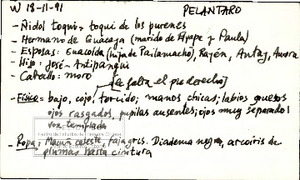 W 18-11-91 PELANTARO
- Ñidol toqui = toqui de los purenes
- Hermano de Guacaya (marido de Elpepe y Paula)
- Esposas: Guacolda (hija de Pailamacho), Rayén, Antay, Aurora
- Hijo: José = Antipangui
- Caballo: moro [le falta el pie derecho]
- Físico = bajo, cojo, torcido; manos chicas; labios gruesos
ojos rasgados, pupilas ausentes; ojos muy separados
voz templada
- Ropa: Manún celeste, faja gris. Diadema negra, arcoiris de
plumas hasta cintura